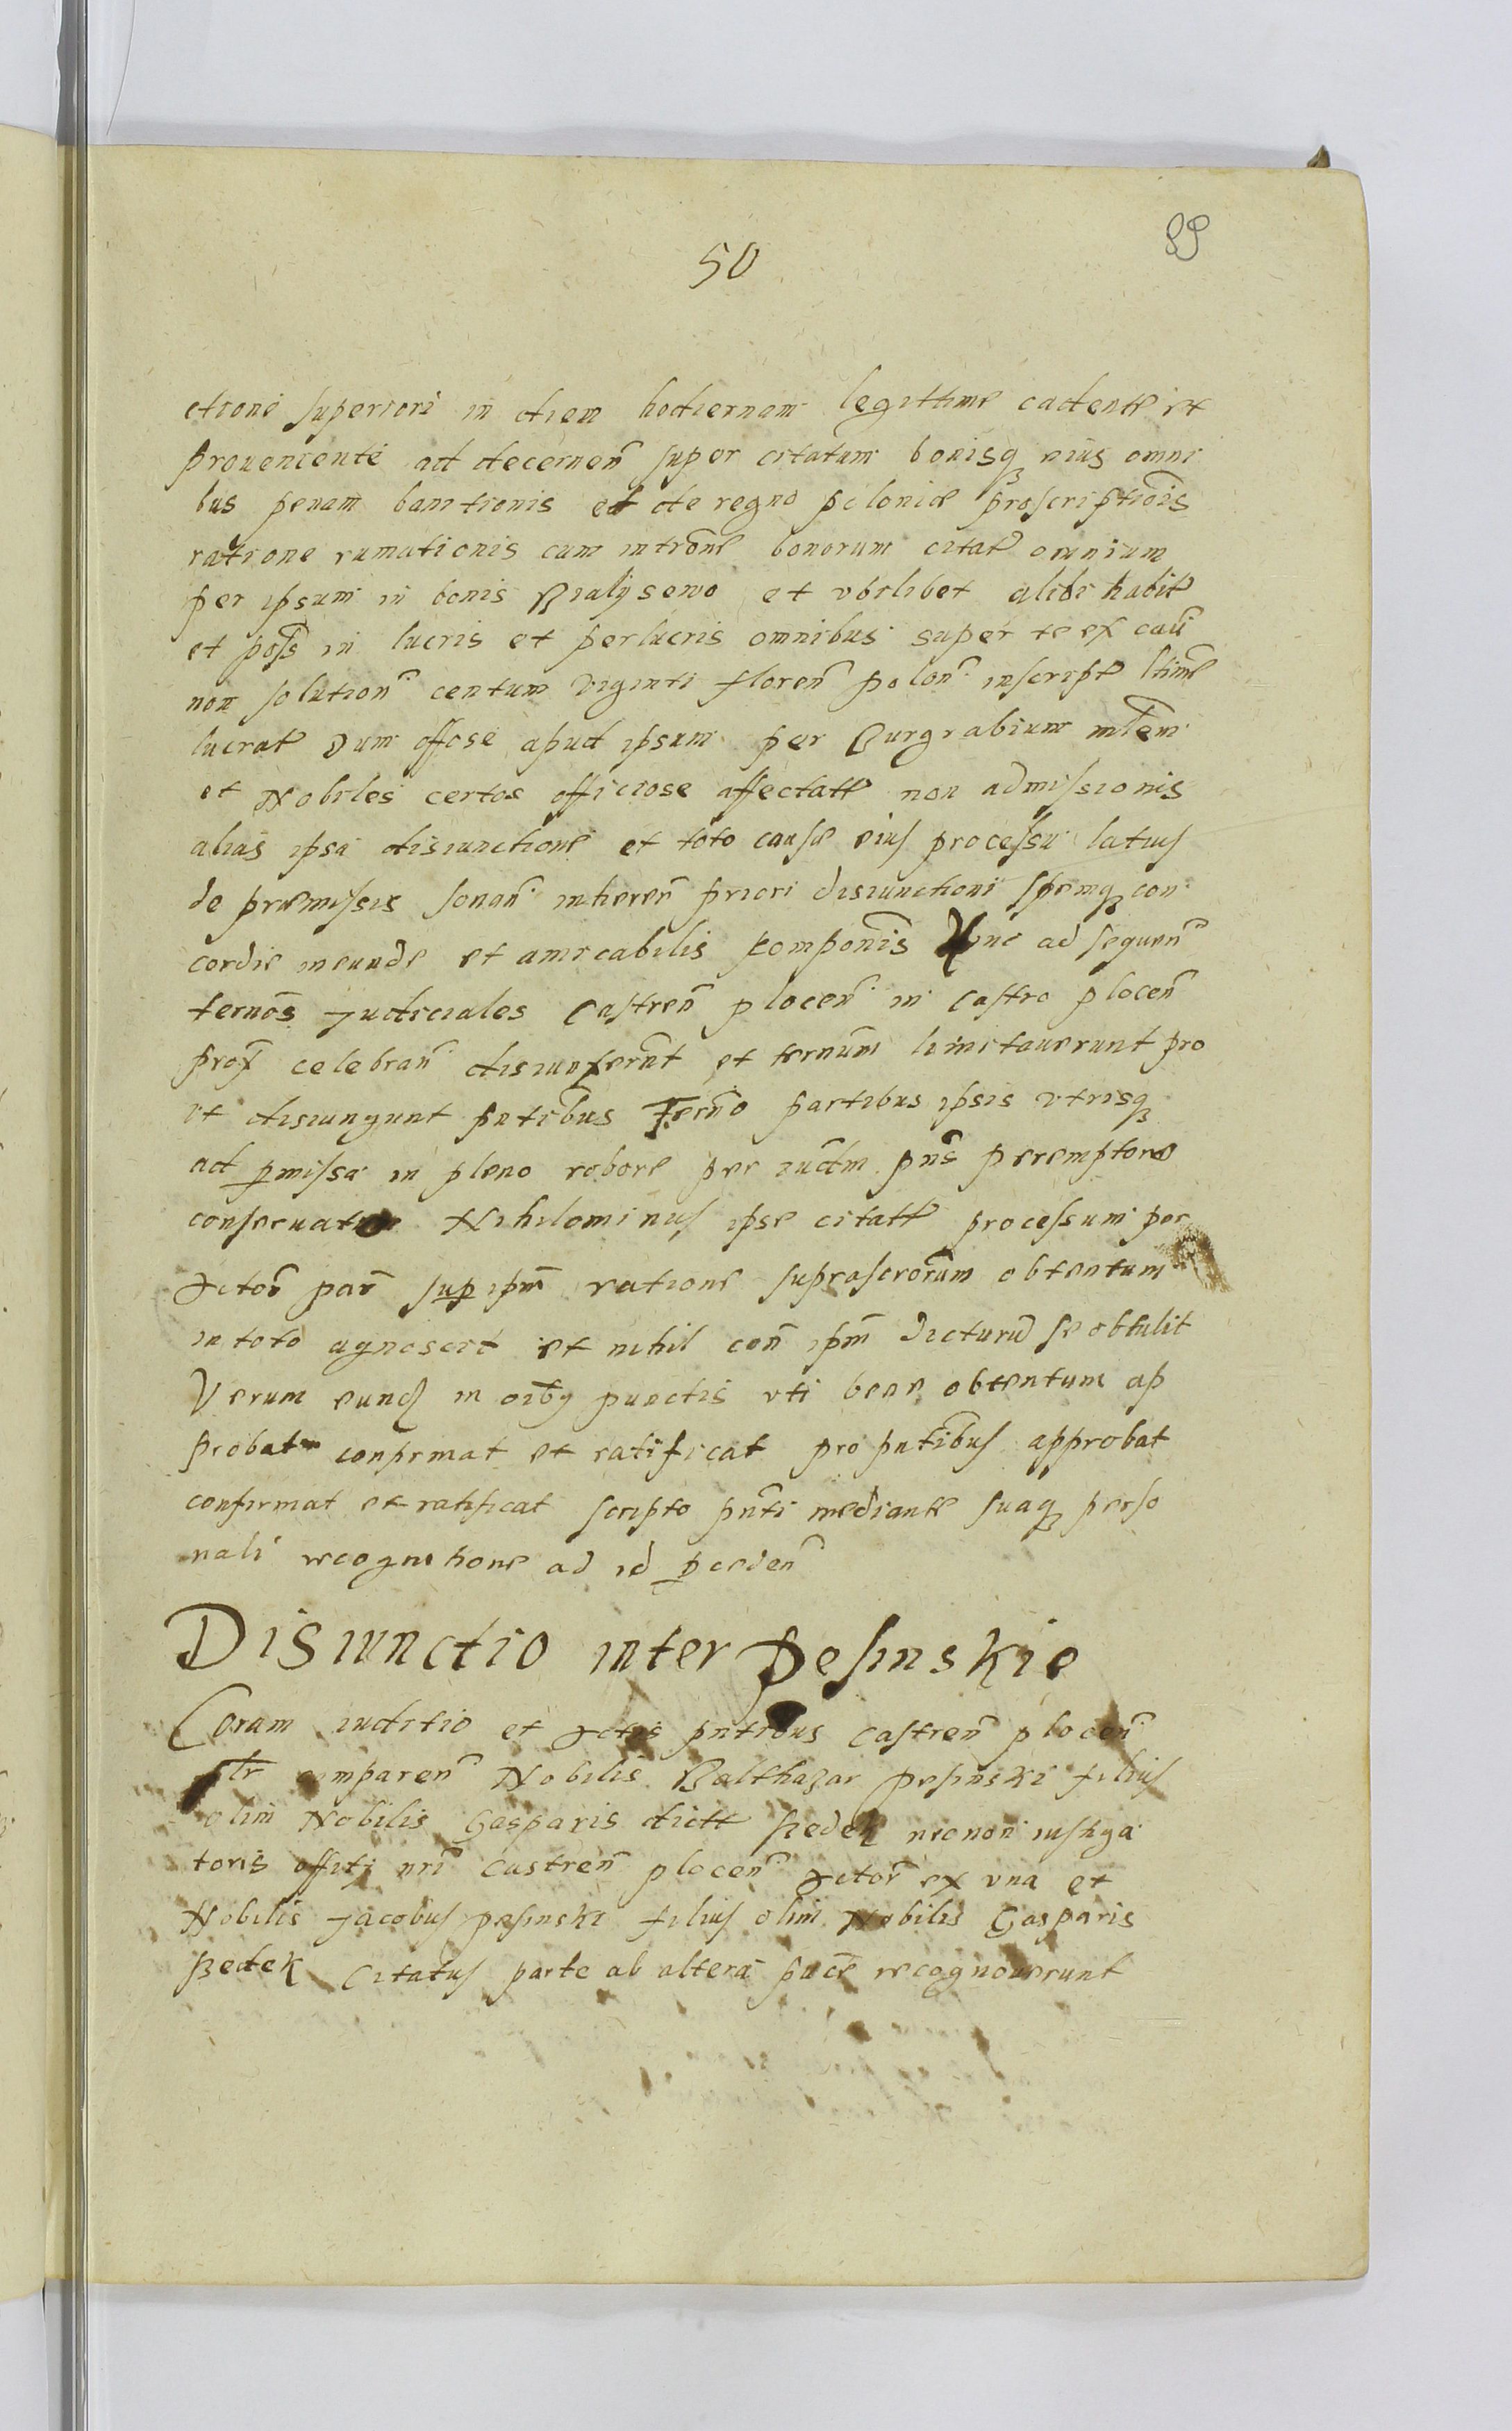 89
50
ctione superiori in diem hodiernam legittime cadente et
proveniente ad decernen̄ super citatum bonisq eius omni
bus penam banitionis et de regno poloniæ proscriptiōis
ratione rumationis cum intrōne bonorum citat omnium
per ipsum in bonis Bialysewo et vbilibet alibi habit
et poss in lucris et perlucris omnibus super te ex cau
non solution̄ centum viginti floren̄ polon̄ inscript ltime
lucrat Dum offose apud ipsum per Burgrabium mltem
et Nobiles certos officiose affectatt non admissionis
alias ipsa disiunctione et toto causæ eius processu latius
de præmissis sonan̄ inheren̄ priori disiunctioni spemq con
cordie ineunde et amicabilis componis hinc ad sequen̄
termos Judiciales Castren̄ plocen̄ in Castro plocen̄
prox celebran̄ disiunxerunt et termum limitauerunt pro
ut disiungunt pntibus Termo partibus ipsis vtrisq
ad pmissa in pleno robore per iudm pns peremptorie
conseruato Nihilominus ipse citatt processum per
Actor par sup ipm ratione suprascrorum obtentum
in toto agnoscit et nihil con̄ ipm dicturu se obtulit
Verum eund in oibus punctis vti bene obtentum ap
probat confirmat et ratificat pro pntibus approbat
confirmat et ratificat scripto pnti mediante suaq perso
nali recognitione ad id pceden̄
Disiunctio inter Pesinskie
Coram iuditio et Actis pntibus Castren̄ plocen̄
ltr comparen̄ Nobilis Balthazar pesinski filius
olim Nobilis Gasparis dictt szedek necnon instiga
toris offitij nri Castren̄ plocen̄ Actor ex vna et
Nobilis Jacobus pesinski filius olim Nobilis Gasparis
szedek Citatus parte ab altera recognouerunt